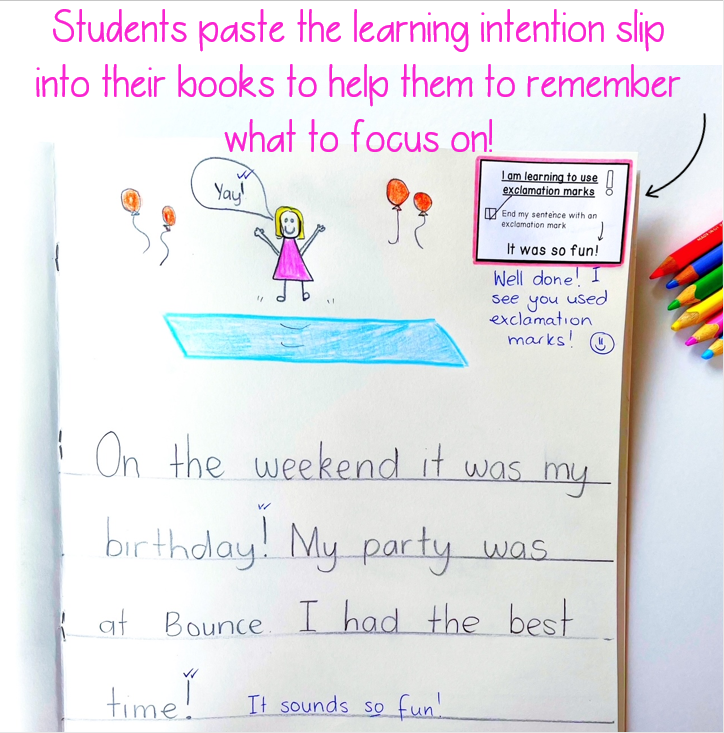 Students paste the learning intention slip
into their books to help them to remember
what to focus on!
Yay!
I am learning to use
exclamation marks
!
End my sentence with an
exclamation mark
It was so fun!
Well done! I
see you used
exclamation
marks!
On the weekend it was my
birthday! My party was
at Bounce. I had the best
time! It sounds so fun!